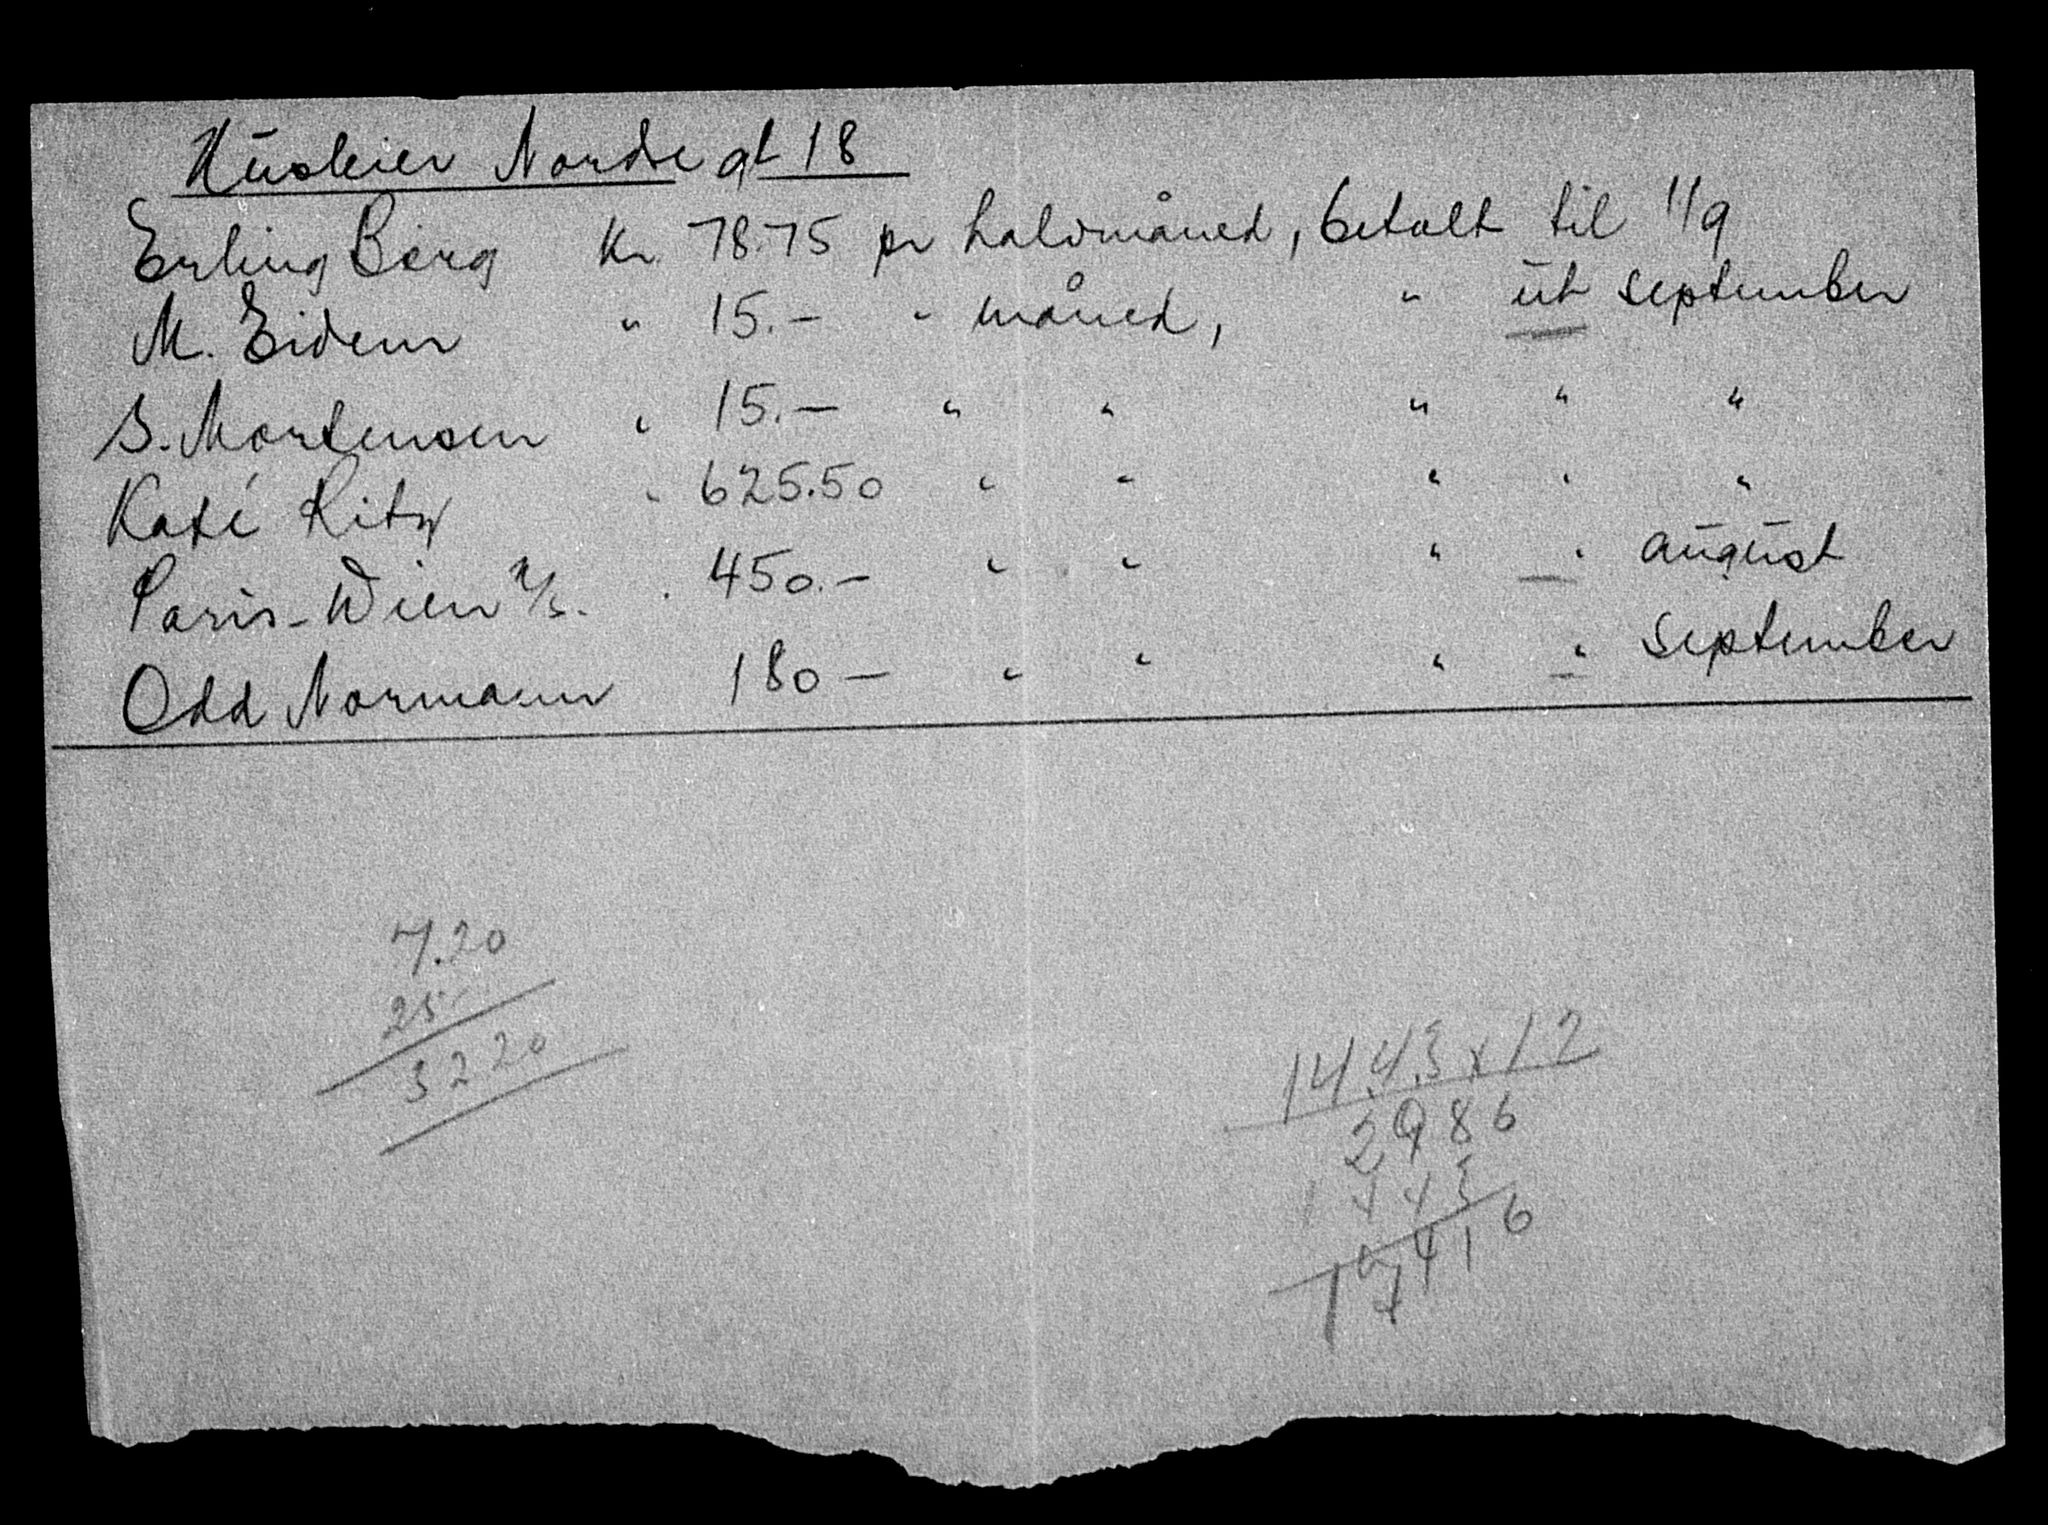 Husleier Nordre gt 18
Erling Berg Kr. 78.75 pr halvmåned, betalt til 1/9
M. Eidem " 15.- " måned, " ut september
S. Mortensen " 15.- " " " " "
Kafé Ritz " 625.50 " " " " "
Paris-Wien A/S. " 450.- " " " " august
Odd Normann 180 - " " " " september
7.20
25
32 20
1443 x 12
2986
1443
17416